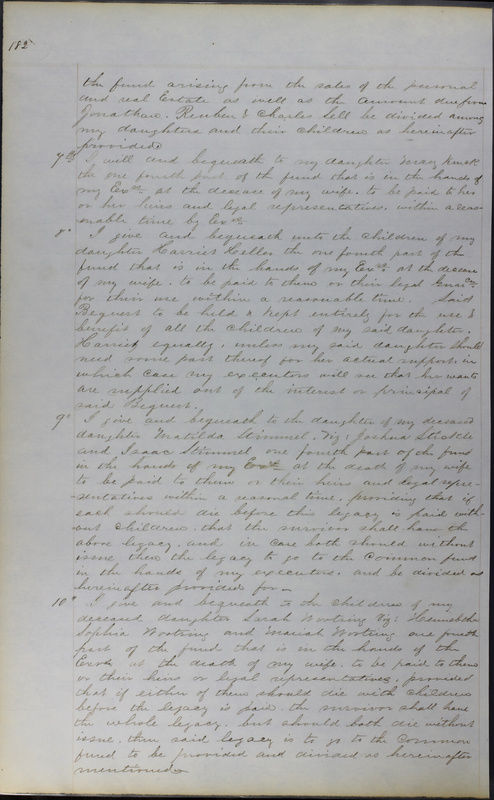 182
the fund arising from the sales of the personal
and real Estate as well as the amount due from
Jonathan. Reuben & Charles Sell be divided among
my daughters and their children as hereinafter
provided
7th I will and bequeath to my daughter
the one fourth part of the fund that is in the hands of
my Exrs at the decease of my wife. to be paid to her
or her heirs and legal representatives. within a reas-
onable time by Exrs
8" I give and bequeath unto the children of my
daughter Harriet Heller the one fourth part of the
fund that is in the hands of my Exrs at the decease
of my wife. to be paid to them or their legal
for their use within a reasonable time. Said
Bequest to be held & kept entirely for the use &
benefit of all the children of my said daughter.
Harriet equally. unless my said daughter should
need some part thereof for her actual support. in
which case my executors will see that her wants
are supplied out of the interest or principal of
said Bequest.
9" I give and bequeath to the daughter of my deceased
daughter Matilda Strummel. Viz; Joshua Stickle
and Isaac Strummel one fourth part of the fund
in the hands of my Exrs at the death of my wife
to be paid to them or their heirs and legal repre-
sentatives within a reasonal time. providing that if
each should die before this legacy is paid with-
out children. that the survivor shall have the
above legacy. and in case both should without
issue then the legacy to go to the Common fund
in the hands of my executors. and be divided as
hereinafter provided for
10" I give and bequeath to the children of my
deceased daughter Sarah Wootring Viz;
Sophia Wootring and Mariah Wootring one fourth
part of the fund that is in the hands of the
Exrs at the death of my wife. to be paid to them
or their heirs or legal representatives. provided
that if either of them should die with children
before the legacy is paid. the survivor shall have
the whole legacy. but should both die without
issue. then said legacy is to go to the Common
fund to be provided and divided as hereinafter
mentioned